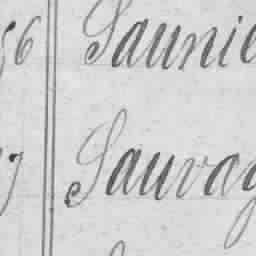 56 Saunie
7 Sauvag